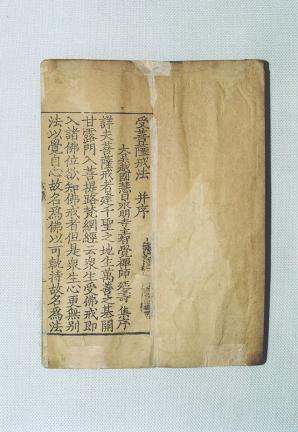 受菩薩戒法 并序
大吳越國慧日永明寺主智覺禪師延壽集序
詳夫菩薩戒者建千聖之地生萬善之基開
甘露門入菩提路梵網經云衆生受佛戒即
入諸佛位欲知佛戒者但是衆生心更無別
法以覺自心故名爲佛以可軌持故名爲法